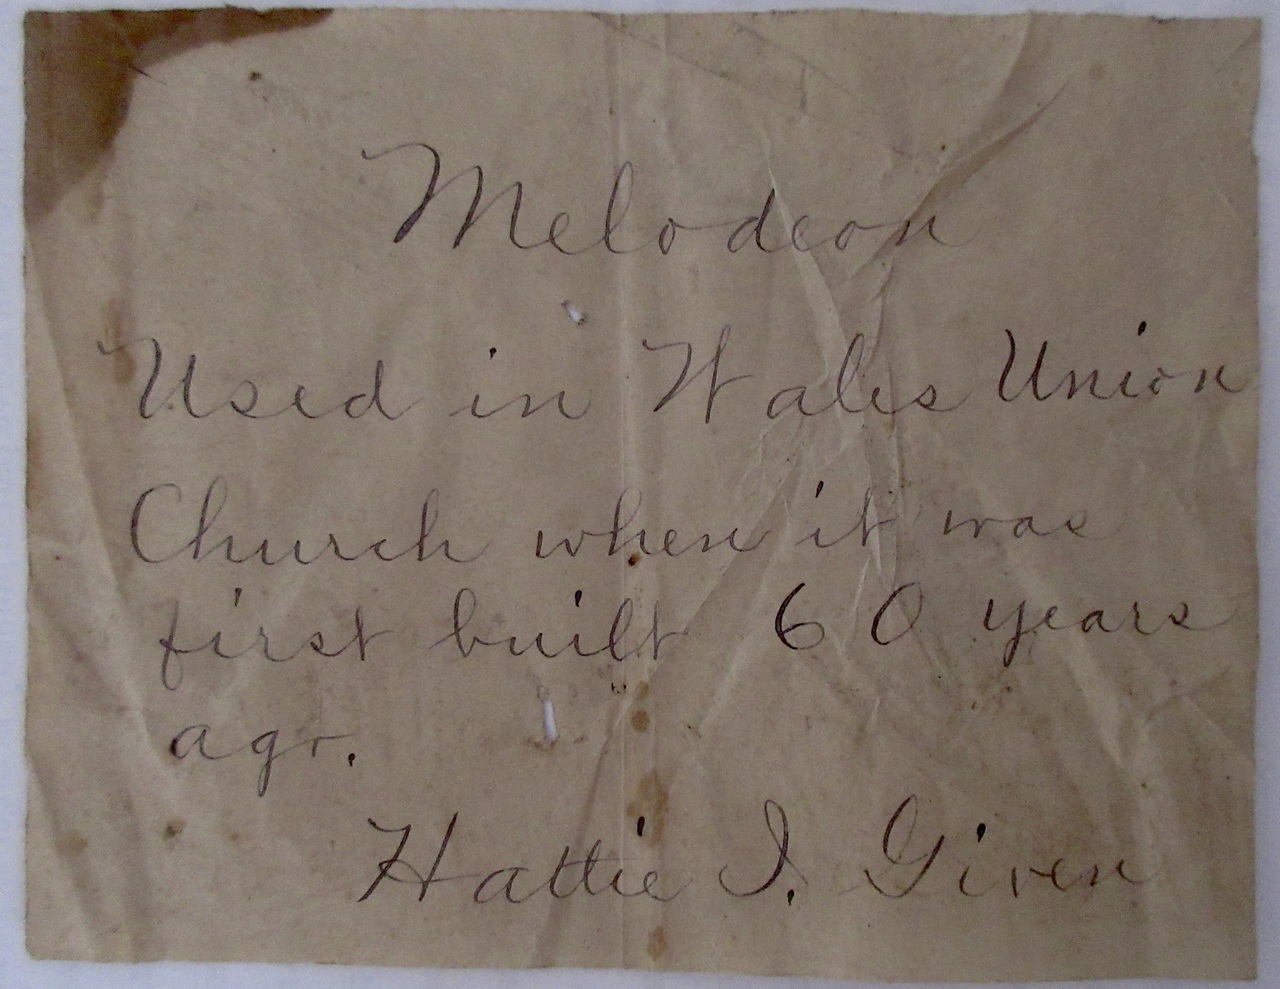 Melodeon
Used in Wales Union
Church when it was
first built 60 years
ago.
Hattie I. Given